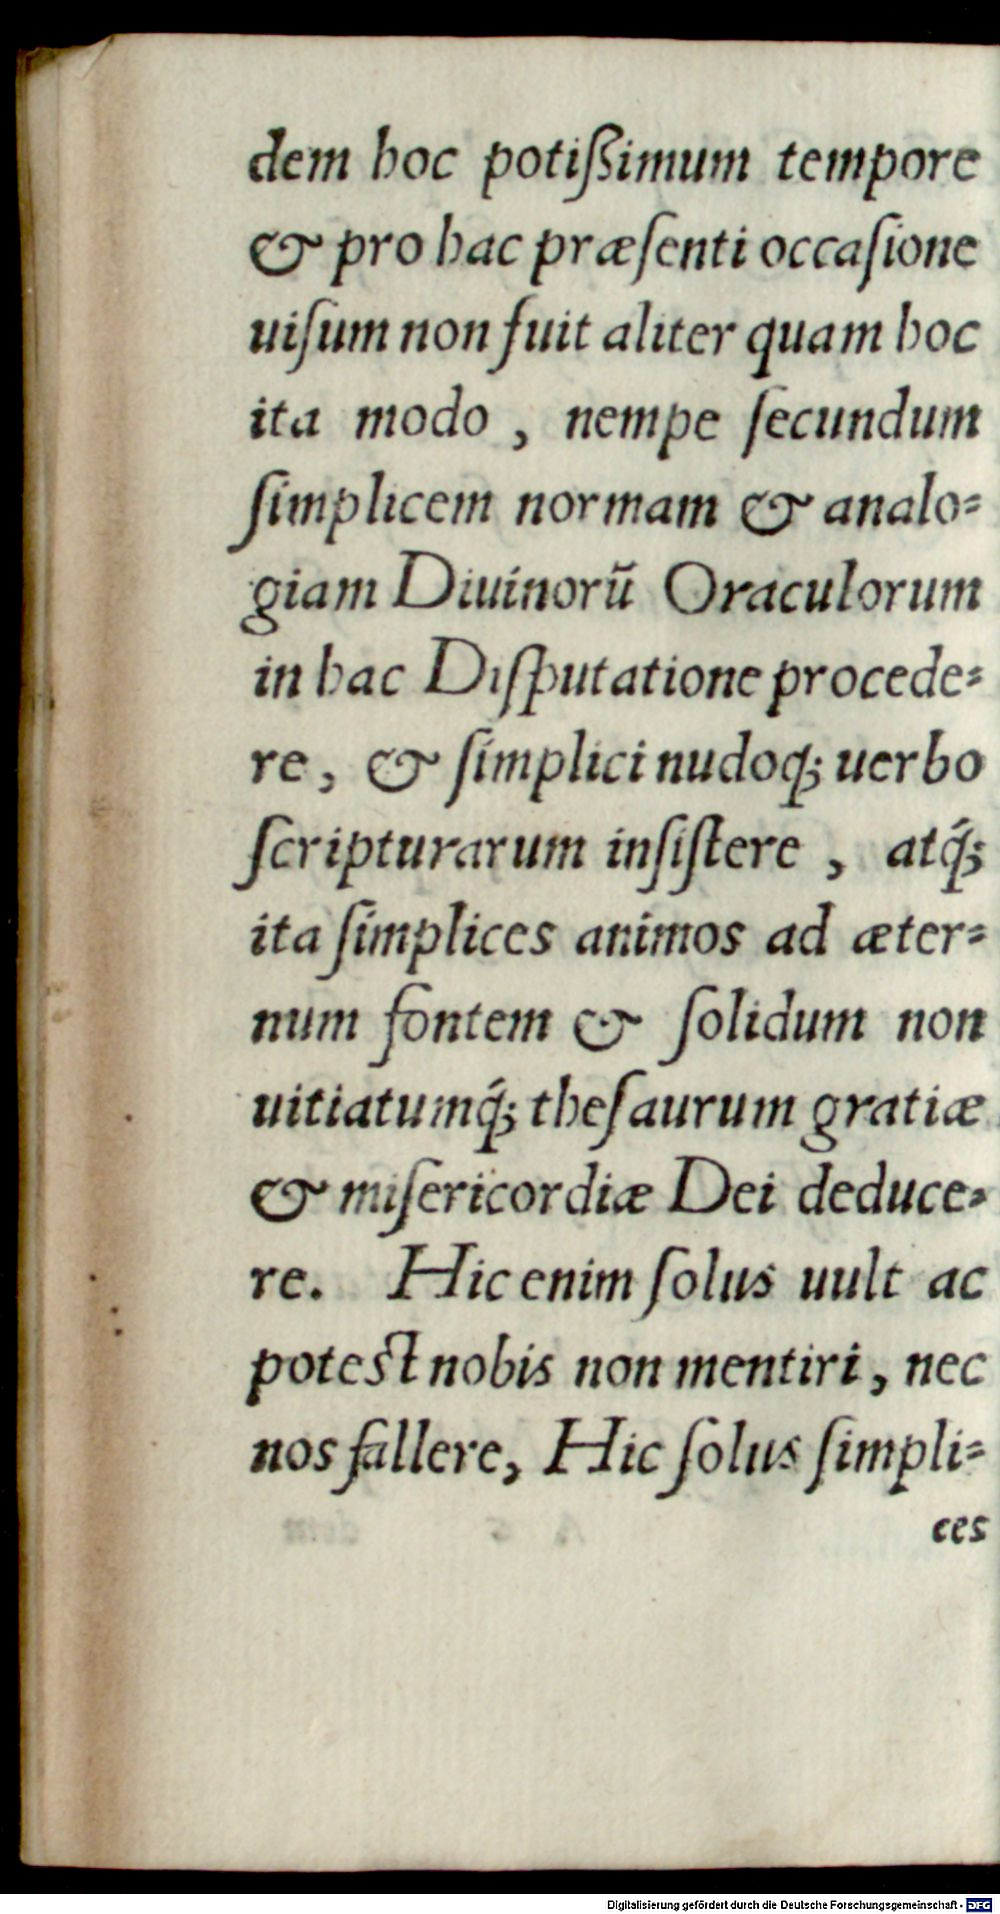 dem hoc potißimum tempore
& pro hac præſenti occaſione
uiſum non fuit aliter quam hoc
ita modo , nempe ſecundum
ſimplicem normam & analo⸗
giam Diuinorū Oraculorum
in hac Diſputatione procede⸗
re, & ſimplici nudoq́; uerbo
ſcripturarum inſiſtere , atq́;
ita ſimplices animos ad æter⸗
num fontem & ſolidum non
uitiatumq́; theſaurum gratiæ
& miſericordiæ Dei deduce⸗
re. Hic enim ſolus uult ac
poteſt nobis non mentiri, nec
nos fallere, Hic ſolus ſimpli⸗
ces
Digitalisierung gefördert durch die Deutsche Forschungsgemeinschaft - DFG